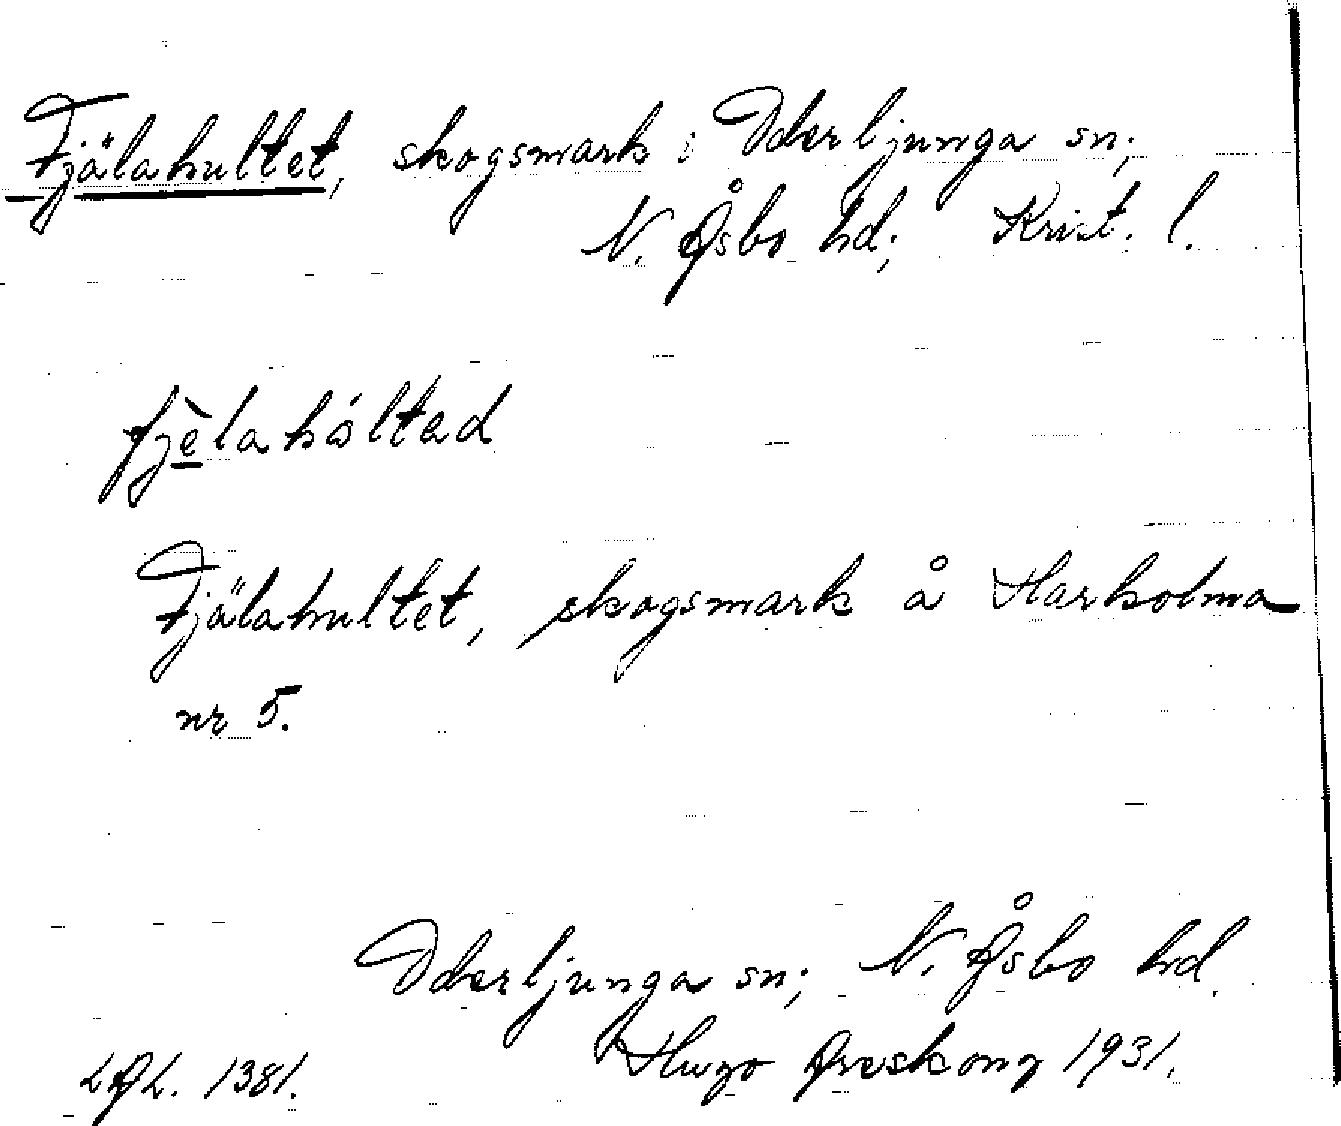 Fjälahultet, skogsmark i Oderljunga sn;
N. Åsbo hd; Krist. l.
fjèlahóltad
Fjälahultet, skogsmark å Harholma
nr 5.
Oderljunga sn; N. Åsbo hd.
Hugo Areskoug 1931.
LAL. 1381.